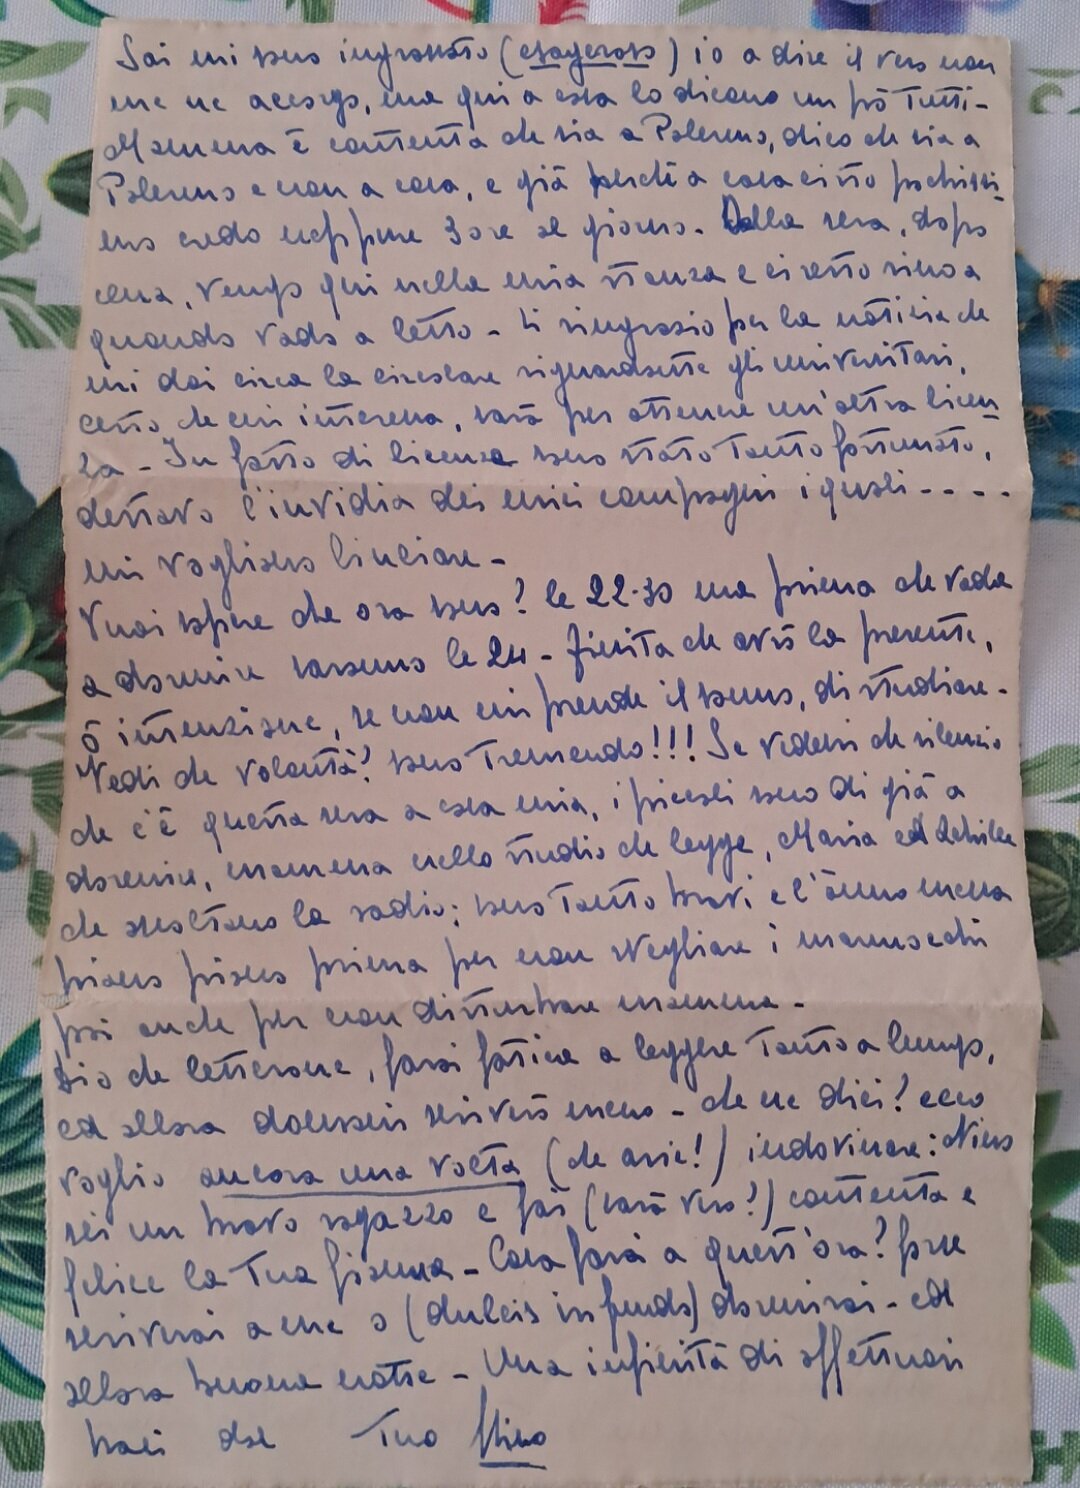 Sai mi sono ingrassato (esagerato) io a dire il vero non
me ne accorgo, ma qui a casa lo dicono un pò tutti -
Mamma è contenta che sia a Palermo, dico che sia a
Palermo e non a casa, e già perchè a casa ci sto pochissi-
mo credo neppure 3 ore al giorno. Della sera, dopo
cena, vengo qui nella mia stanza e ci resto sino a
quando vado a letto - Ti ringrazio per la notizia che
mi dai circa la circolare riguardante gli universitari,
certo che mi interessa, sarà per ottenere un'altra licen
za - In fatto di licenza sono stato tanto fortunato,
destavo l'invidia dei miei compagni i quali - - - -
mi vogliono linciare -
Vuoi sapere che ora sono? le 22.30 ma prima che vada
a dormire saranno le 24 - Finita che avrò la presente,
ò intenzione, se non mi prende il sonno, di studiare -
Vedi che volontà? sono tremendo!!! Se vedessi che silenzio
che c'è questa sera a casa mia, i piccoli sono di già a
dormire, mamma nello studio che legge, Maria ed Achille
che ascoltano la radio; sono tanto bravi e l'ànno messa
piano piano prima per non svegliare i
poi anche per non disturbare mamma -
Dio che letterone, farai fatica a leggere tanto a lungo,
ed allora dovrei scriverò meno - che ne dici? ecco
voglio ancora una volta (che arie!) indovinare: Nino
sei un bravo ragazzo e fai (sarà vero?) contenta e
felice la tua - Cosa farai a quest'ora? forse
scriverai a me o (dulcis in fundo) dormirai - ed
allora buona notte - Una infinità di affettuosi
baci dal Tuo Nino